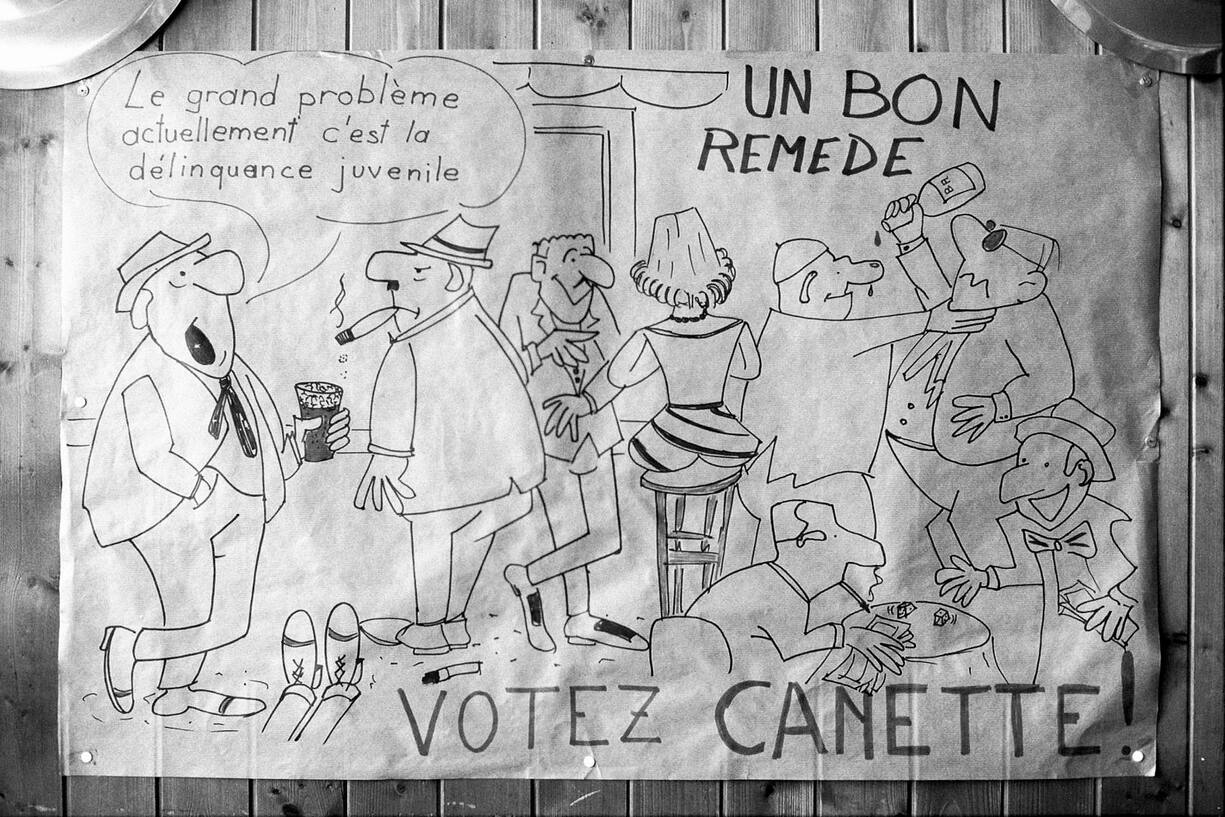 Le grand problème
actuellement c'est la
délinquance juvenile
UN BON
REMEDE
BR
VOTEZ CANETTE!